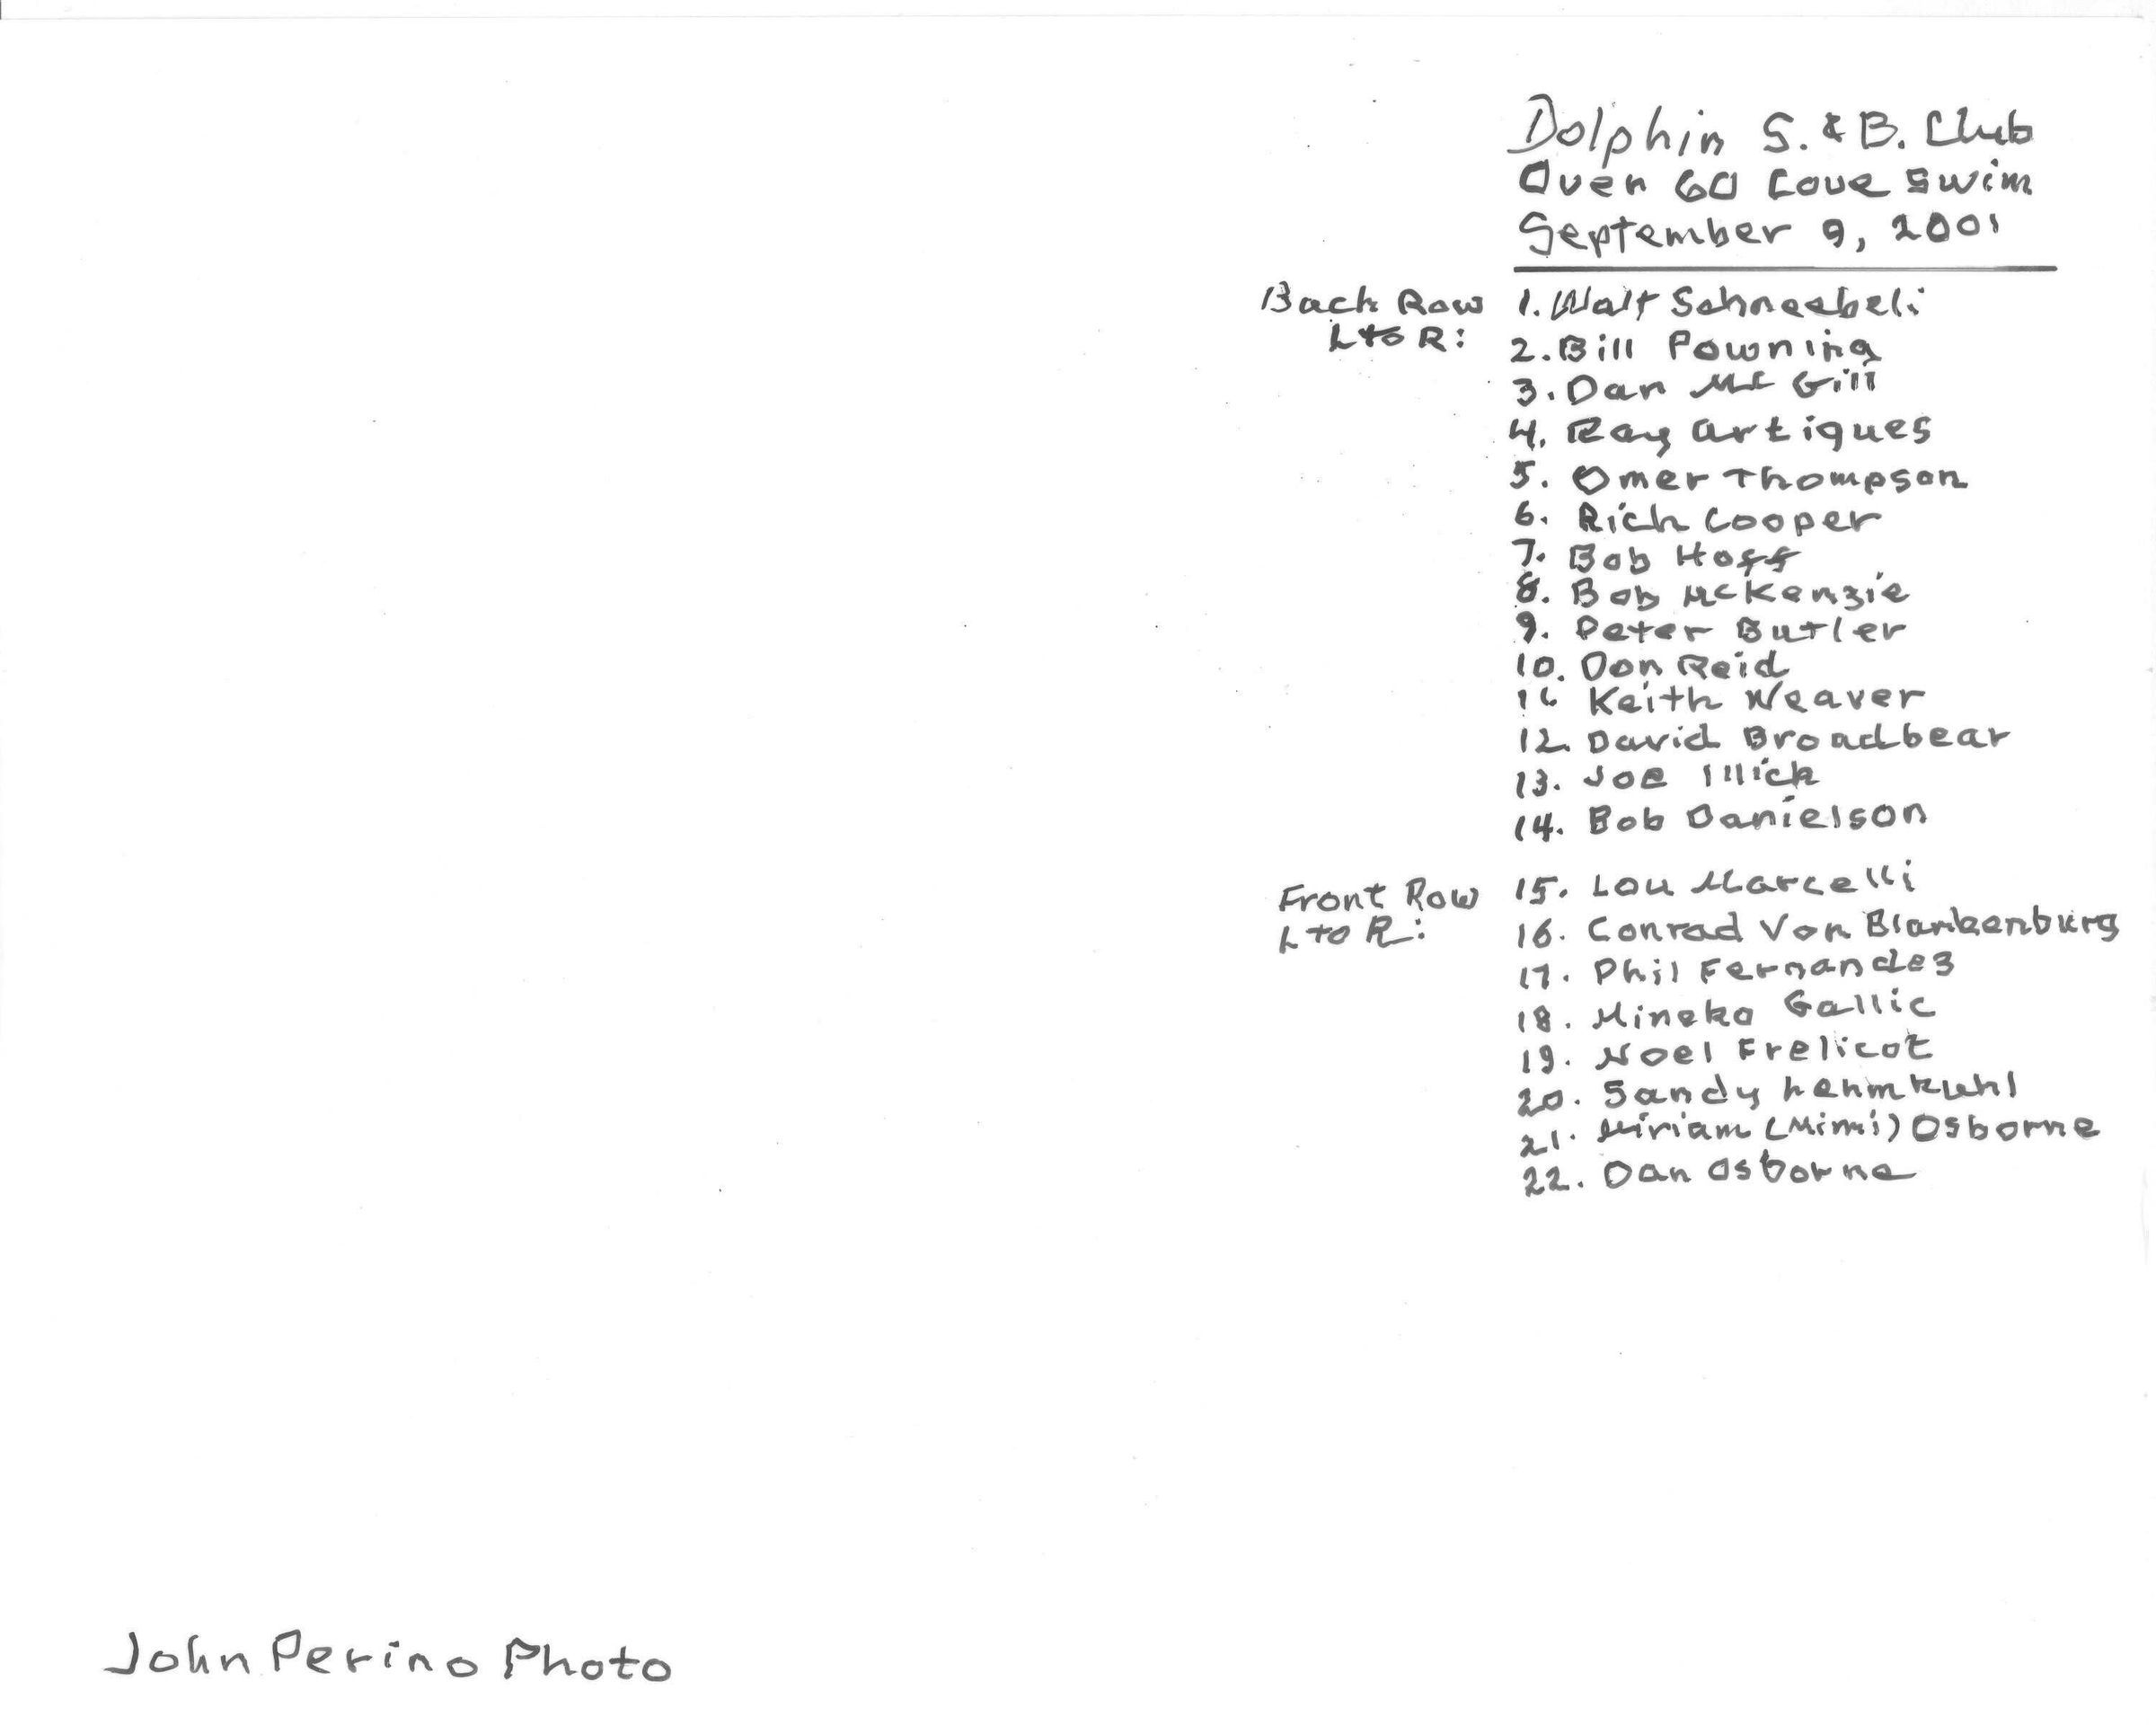 Dolphin S. & B. Club
Over 60 Cove Swim
September 9, 2001
Back Row 1. Walt Schneebeli
L to R: 2. Bill Powning
3. Dan Mc Gill
4. Ray Artigues
5. Omer Thompson
6. Rich Cooper
7. Bob Hoff
8. Bob McKenzie
9. Peter Butler
10. Don Reid
11. Keith Weaver
12. David Broadbear
13. Joe Illick
14. Bob Danielson
Front Row 15. Lou Marcelli
L to R: 16. Conrad Von Blankenburg
17. Phil Fernandez
18. Mineko Gallic
19. Noel Frelicot
20. Sandy Lehmkuhl
21. Miriam (Mimi) Osborne
22. Dan Osborne
John Perino Photo